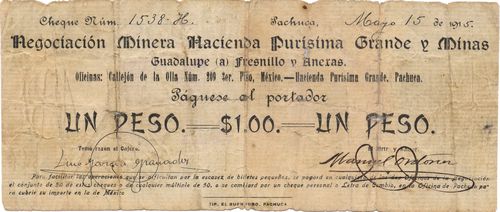 Cheque Núm. 1538-H. Pachuca, Mayo 15 de 1915
Negociación Minera Hacienda Purísima Grande y Minas
Guadalupe (a) Fresnillo y Anexas.
Oficinas: Callejón de la Olla Núm. 209 3er. Piso, México.—Hacienda Purísima Grande. Pachuca.
Páguese al portador
UN PESO.—$1.00.—UN PESO.
Toma razón el Cajero,
Luis García Granados
Manuel
Para facilitar las operaciones que se dificultan por la escasez de billetes pequeños, se pagará en cualquiera de las de la negociación
el conjunto de 50 de estos cheques o de cualquier múltiplo de 50, o se cambiará por un cheque personal o Letra de Cambio, en la Oficina de Pachuca pa
ra cubrir su importe en la de México
TIP. EL BUEN TONO, PACHUCA